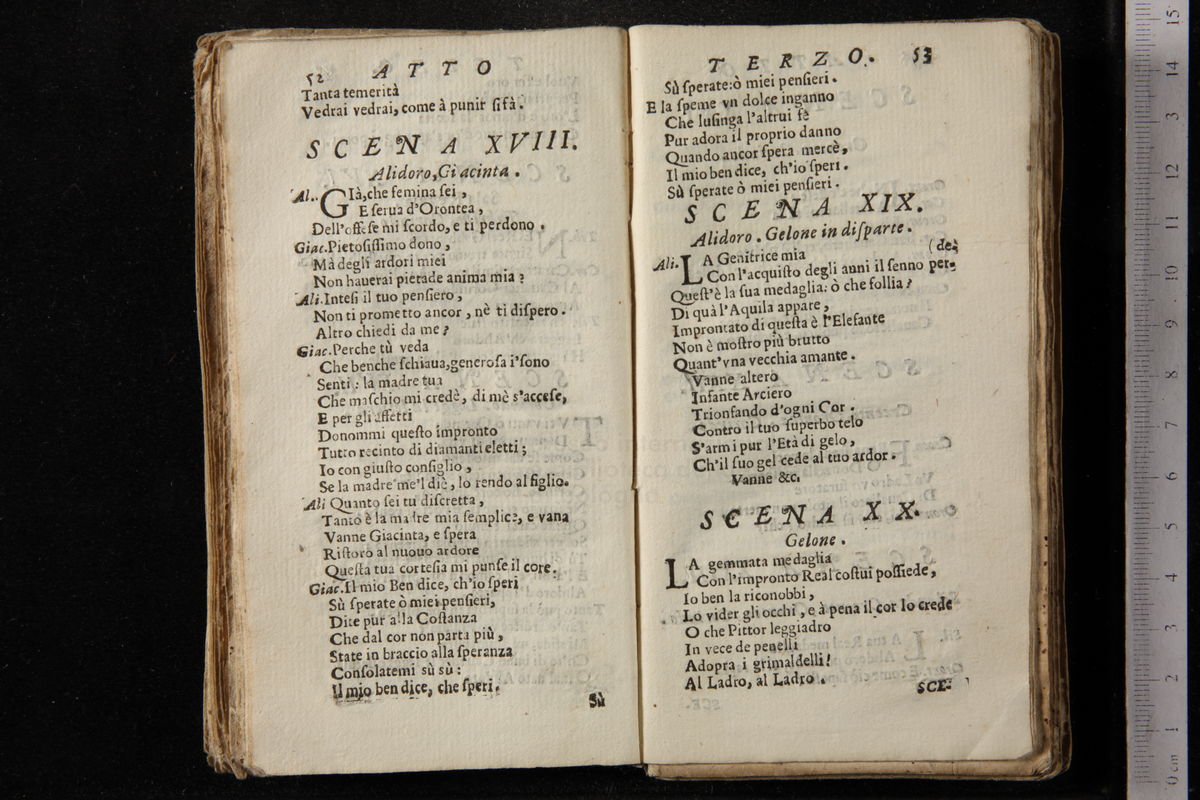 52 ATTO
Tanta temerità
Vedrai vedrai, come à punir si fà.
SCENA XVIII.
Alidoro, Giacinta.
Al. GIà, che femina sei,
E serua d'Orontea,
Dell'offese mi scordo, e ti perdono.
Giac. Pietosissimo dono,
Mà degli ardori miei
Non hauerai pietade anima mia?
Ali. Intesi il tuo pensiero,
Non ti prometto ancor, nè ti dispero.
Altro chiedi da me?
Giac. Perche tù veda
Che benche schiaua, generosa i' sono
Senti: la madre tua
Che maschio mi credè, di mè s'accese,
E per gli affetti
Donommi questo impronto
Tutto recinto di diamanti eletti;
Io con giusto consiglio,
Se la madre me'l diè, lo rendo al figlio.
Ali Quanto sei tu discretta,
Tanto è la madre mia semplice, e vana
Vanne Giacinta, e spera
Ristoro al nuouo ardore
Questa tua cortesia mi punse il core.
Giac. Il mio Ben dice, ch'io speri
Sù sperate ò miei pensieri,
Dite pur alla Costanza
Che dal cor non parta più,
State in braccio alla speranza
Consolatemi sù sù:
Il mio ben dice, che speri.
Sù
TERZO. 53
Sù sperate: ò miei pensieri.
E la speme vn dolce inganno
Che lusinga l'altrui fè
Pur adora il proprio danno
Quando ancor spera mercè,
Il mio ben dice, ch'io speri.
Sù sperate ò miei pensieri.
SCENA XIX.
Alidoro. Gelone in disparte.
Ali. LA Genitrice mia (de;
Con l'acquisto degli anni il senno per-
Quest'è la sua medaglia: ò che follia?
Di quà l'Aquila appare,
Improntato di questa è l'Elefante
Non è mostro più brutto
Quant'vna vecchia amante.
Vanne altero
Infante Arciero
Trionfando d'ogni Cor.
Contro il tuo superbo telo
S'armi pur l'Età di gelo,
Ch'il suo gel cede al tuo ardor.
Vanne &c.
SCENA XX.
Gelone.
LA gemmata medaglia
Con l'impronto Real costui possiede,
Io ben la riconobbi,
Lo vider gli occhi, e à pena il cor lo crede
O che Pittor leggiadro
In vece de penelli
Adopra i grimaldelli!
Al Ladro, al Ladro.
SCE-